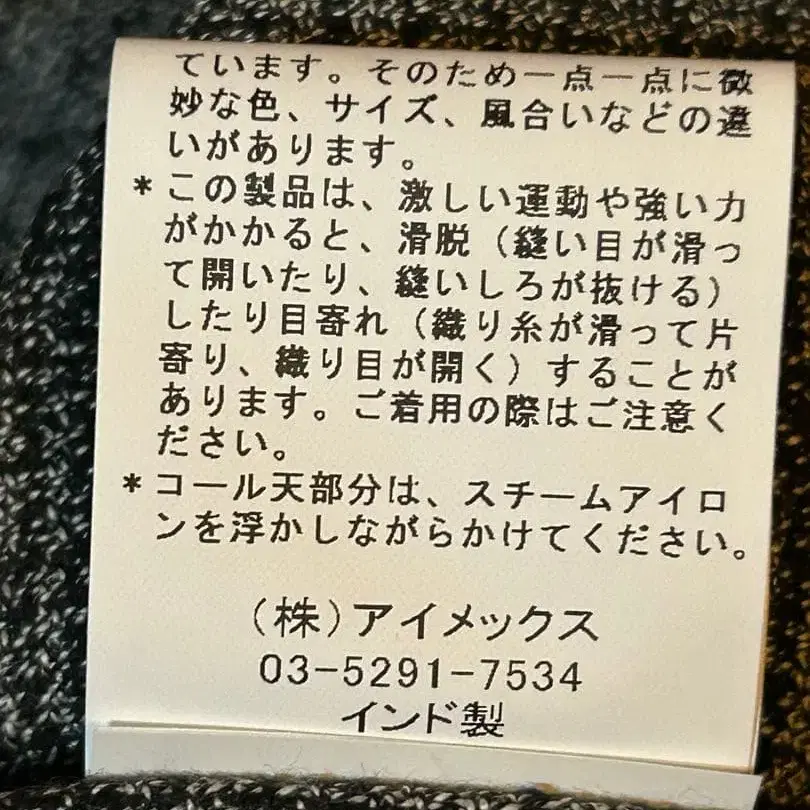 ています。そのため一点一点に微
妙な色、サイズ、風合いなどの違
いがあります。
*この製品は、激しい運動や強い力
がかかると、滑脱（縫い目が滑っ
て開いたり、縫いしろが抜ける）
したり目寄れ（織り糸が滑って片
寄り、織り目が開く）することが
あります。ご着用の際はご注意く
ださい。
*コール天部分は、スチームアイロ
ンを浮かしながらかけてください。
（株）アイメックス
03-5291-7534
インド製